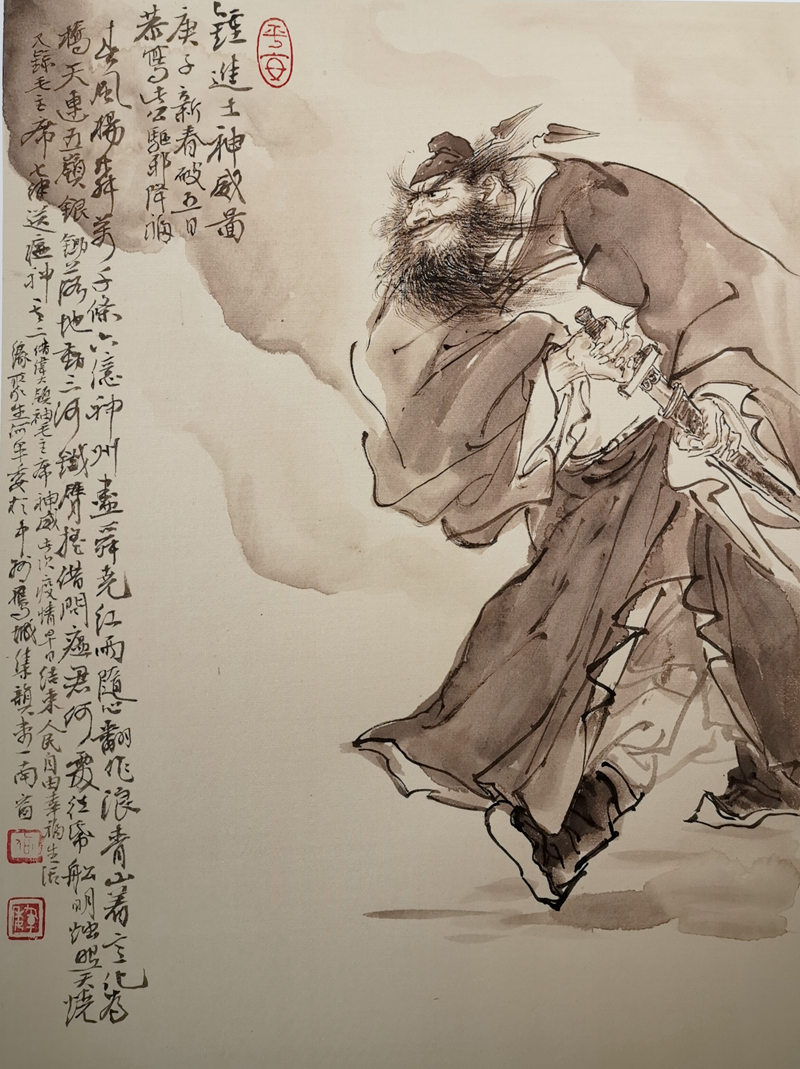 平安
鍾進士神威图
庚子新春破五日
恭寫此公驅邪降福
春風楊柳萬千條六億神州盡舜堯紅雨隨心翻作浪青山着意化為
橋天連五嶺銀鋤落地動三河鐵臂搖借問瘟君何處往帋船明燭照天燒
又錄毛主席七律送瘟神之二借偉大領袖毛主席神威此次疫情早日結束人民自由幸福生活
緣聚生何軍委於中州鷹城集韻齋南窗
何